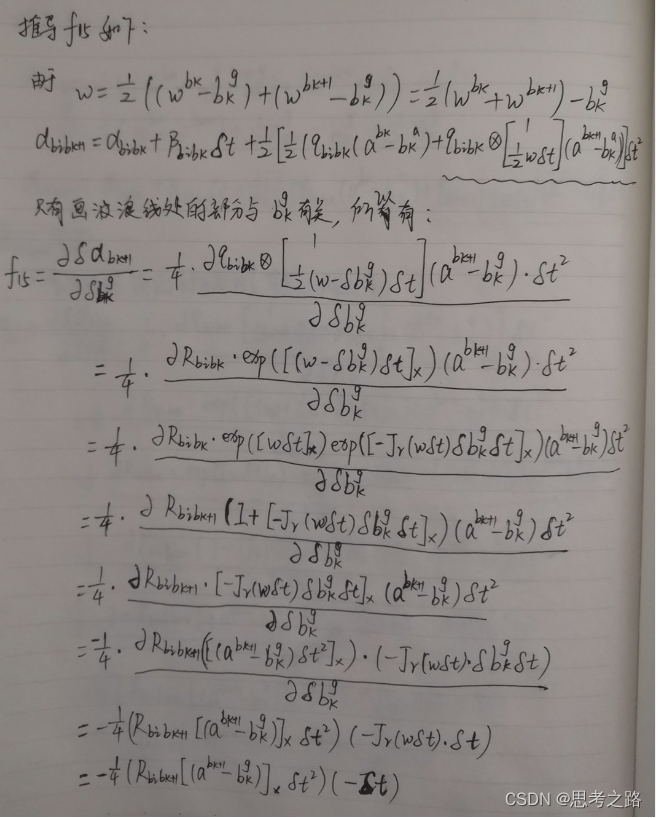 推导 f15 如下:
由于 w = 1/2((w^{bk} - b_k^g) + (w^{bk+1} - b_k^g)) = 1/2(w^{bk} + w^{bk+1}) - b_k^g
α_{bibk+1} = α_{bibk} + β_{bibk} δt + 1/2[1/2(q_{bibk}(a^{bk} - b_k^a) + q_{bibk} ⊗ [1; 1/2 w δt](a^{bk+1} - b_k^a)]δt²
只有画波浪线处的部分与 b_k^g 有关, 所以有:
f15 = ∂δα_{bk+1} / ∂δb_k^g = 1/4 · ∂q_{bibk} ⊗ [1; 1/2(w - δb_k^g)δt](a^{bk+1} - b_k^g) · δt² / ∂δb_k^g
= 1/4 · ∂R_{bibk} · exp([(w - δb_k^g)δt]_×)(a^{bk+1} - b_k^g) · δt² / ∂δb_k^g
= 1/4 · ∂R_{bibk} · exp([wδt]_×) exp([-J_r(wδt)δb_k^g δt]_×)(a^{bk+1} - b_k^g)δt² / ∂δb_k^g
= 1/4 · ∂R_{bibk+1}(I + [-J_r(wδt)δb_k^g δt]_×)(a^{bk+1} - b_k^g)δt² / ∂δb_k^g
= 1/4 · ∂R_{bibk+1} · [-J_r(wδt)δb_k^g δt]_× (a^{bk+1} - b_k^g)δt² / ∂δb_k^g
= -1/4 · ∂R_{bibk+1}([(a^{bk+1} - b_k^g)δt²]_×) · (-J_r(wδt)·δb_k^g δt) / ∂δb_k^g
= -1/4(R_{bibk+1}[(a^{bk+1} - b_k^g)]_× δt²)(-J_r(wδt)·δt)
= -1/4(R_{bibk+1}[(a^{bk+1} - b_k^g)]_× δt²)(-δt)
CSDN @思考之路